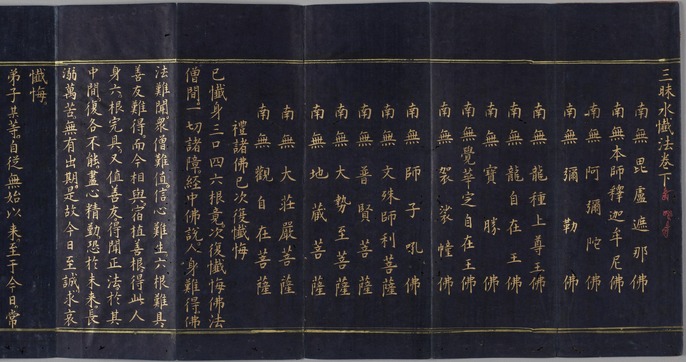 三昧水懺法卷下
南無毘盧遮那佛
南無本師釋迦牟尼佛
南無阿彌陀佛
南無彌勒佛
南無龍種上尊王佛
南無龍自在王佛
南無寶勝佛
南無覺華定自在王佛
南無袈裟幢佛
南無師子吼佛
南無文殊師利菩薩
南無普賢菩薩
南無大勢至菩薩
南無地藏菩薩
南無大莊嚴菩薩
南無觀自在菩薩
禮諸佛已次復懺悔
已懺身三口四六根竟次復懺悔佛法
僧間一切諸障經中佛說人身難得佛
法難聞衆僧難值信心難生六根難具
善友難得而今相與宿植善根得此人
身六根完具又值善友得聞正法於其
中間復各不能盡心精勤恐於未來長
溺萬苦無有出期是故今日至誠求哀
懺悔
弟子某等自從無始以來至于今日常